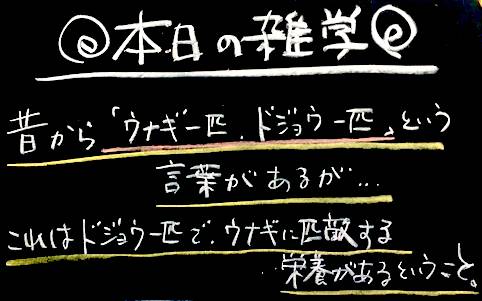 本日の雑学
昔から「ウナギ一匹、ドジョウ一匹」という
言葉があるが...
これはドジョウ一匹で、ウナギに匹敵する
栄養があるということ。